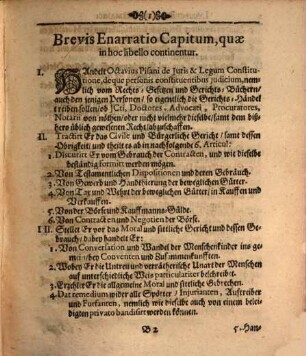 Brevis Enarratio Capitum, quæ
in hoc libello continentur.
I. HAndelt Octavius Pisani de Juris & Legum Constitu-
tione, deque personis constituentibus judicium, nem-
lich vom Rechts-Gesetzen und Gerichts-Büchern/
auch den jenigen Personen/ so eigentlich die Gerichts-Händel
treiben sollen, ob JCti, Doctores, Advocati, Procuratores,
Notarii von nöthen/ oder nicht vielmehr dieselbe/ samt dem biß-
hero üblich gewesenen Rechten abzuschaffen.
II. Tractirt Er das Civile und Bürgerliche Gericht/ samt dessen
Obrigkeit; und theilt es ab in nachfolgende 6. Articul:
1. Discutirt Er vom Gebrauch der Contracten, und wie dieselbe
beständig formirt werden mögen.
2. Von Testamentlichen Dispositionen und deren Gebräuch.
3. Von Gewerb und Handthierung der beweglichen Gütter.
4. Von Tax und Wehrt der beweglichen Gütter/ in Kauffen und
Verkauffen.
5. Von der Börse und Kauffmanns-Gülde.
6. Von Contracten und Negotien der Börse.
III. Stellet Er vor das Moral und sittliche Gericht und dessen Ge-
brauch; dabey handelt Er:
1. Von Conversation und Wandel der Menschenkinder ins ge-
mein/ über Conventen und Zusammenkunfften.
2. Wobey Er die Untreu und verrätherische Unart der Menschen
auf unterschiedliche Weis particulariter beschreibet.
3. Erzehlet Er die allgemeine Moral und sittliche Gebrechen.
4. Dat remedium wider alle Spötter/ Injurianten, Auftreiber
und Furianten, nemlich wie dieselbe auch von einem belei-
digten privato bandisirt werden können.
B 2 5. Han-